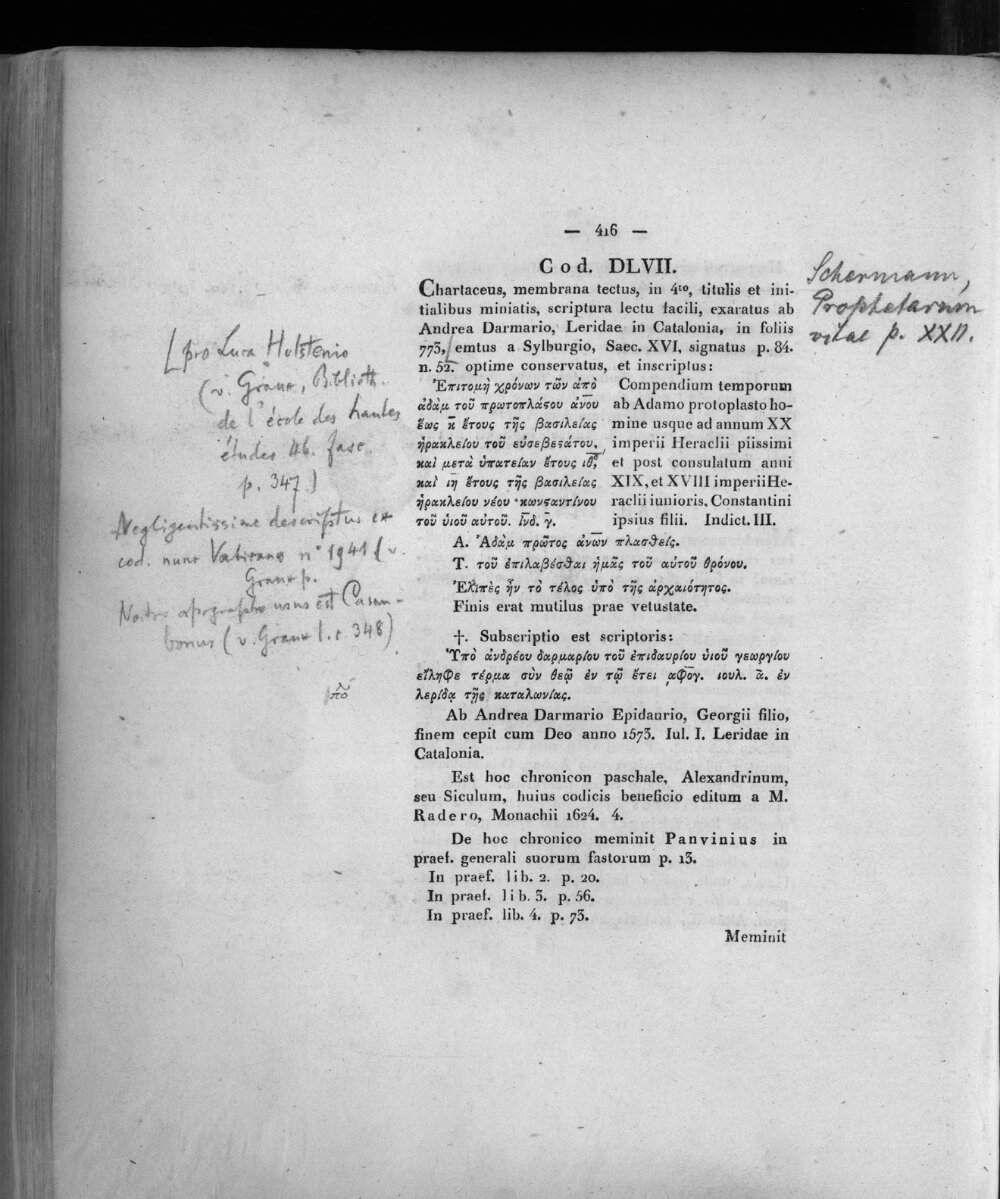 — 416 —
Cod. DLVII.
Chartaceus, membrana tectus, in 4to, titulis et ini-
tialibus miniatis, scriptura lectu facili, exaratus ab
Andrea Darmario, Leridae in Catalonia, in foliis
773, emtus a Sylburgio, Saec. XVI, signatus p. 84.
n. 52. optime conservatus, et inscriptus:
Ἐπιτομὴ χρόνων τῶν ἀπὸ
ἀδὰμ τοῦ πρωτοπλάϛου ἀνου
ἕως κ ἔτους τῆς βασιλείας
ἡρακλείου τοῦ εὐσεβεϛάτου,
καὶ μετὰ ὑπατείαν ἔτους ιθ,
καὶ ιη ἔτους τῆς βασιλείας
ἡρακλείου νέου κωνσαντίνου
τοῦ ὑιοῦ αὐτοῦ. ἰνδ. γ.
Compendium temporum
ab Adamo protoplasto ho-
mine usque ad annum XX
imperii Heraclii piissimi
et post consulatum anni
XIX, et XVIII imperii He-
raclii iunioris, Constantini
ipsius filii. Indict. III.
A. Ἀδὰμ πρῶτος ἀνων πλασθείς.
T. τοῦ ἐπιλαβέσθαι ἡμᾶς τοῦ αὐτοῦ θρόνου.
Ἐλιπὲς ἦν τὸ τέλος ὑπὸ τῆς ἀρχαιότητος.
Finis erat mutilus prae vetustate.
†. Subscriptio est scriptoris:
Ὑπὸ ἀνδρέου δαρμαρίου τοῦ ἐπιδαυρίου ὑιοῦ γεωργίου
εἴληφε τέρμα σὺν θεῷ ἐν τῷ ἔτει ͵αφογ. ιουλ. ᾱ. ἐν
λερίδᾳ τῇς καταλωνίας.
Ab Andrea Darmario Epidaurio, Georgii filio,
finem cepit cum Deo anno 1573. Iul. I. Leridae in
Catalonia.
Est hoc chronicon paschale, Alexandrinum,
seu Siculum, huius codicis beneficio editum a M.
Radero, Monachii 1624. 4.
De hoc chronico meminit Panvinius in
praef. generali suorum fastorum p. 13.
In praef. lib. 2. p. 20.
In praef. lib. 3. p. 56.
In praef. lib. 4. p. 73.
Meminit
[pro Luca Holstenio
(v. Graux, Biblioth.
de l'école des hautes
études 46. fasc.
p. 347.)
Negligentissime descriptus ex
cod. nunc Vaticano n° 1941 (v.
Graux p.
Nostro apographo usus est Casau-
bonus (v. Graux l. c. 348)
Schermann,
Prophetarum
vitae p. XXII.